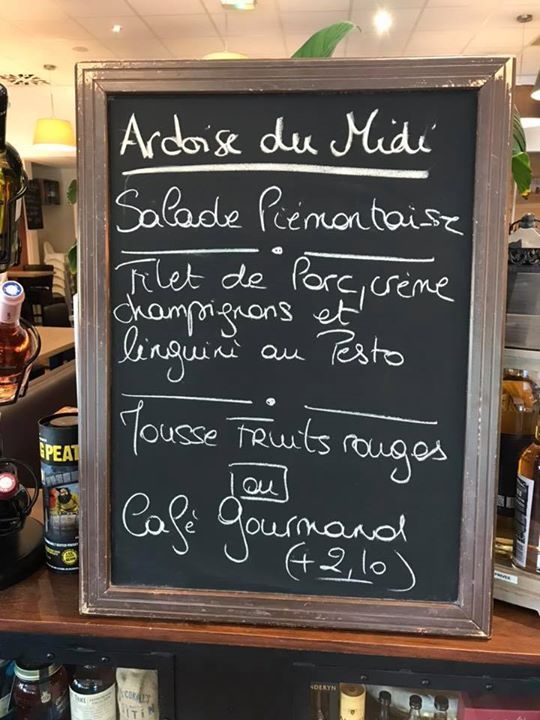 Ardoise du Midi
Salade Piémontaise
Filet de Porc, crème
champignons et
linguini au Pesto
Mousse FRuits rouges
ou
Café Gourmand
(+2,10)
PEAT